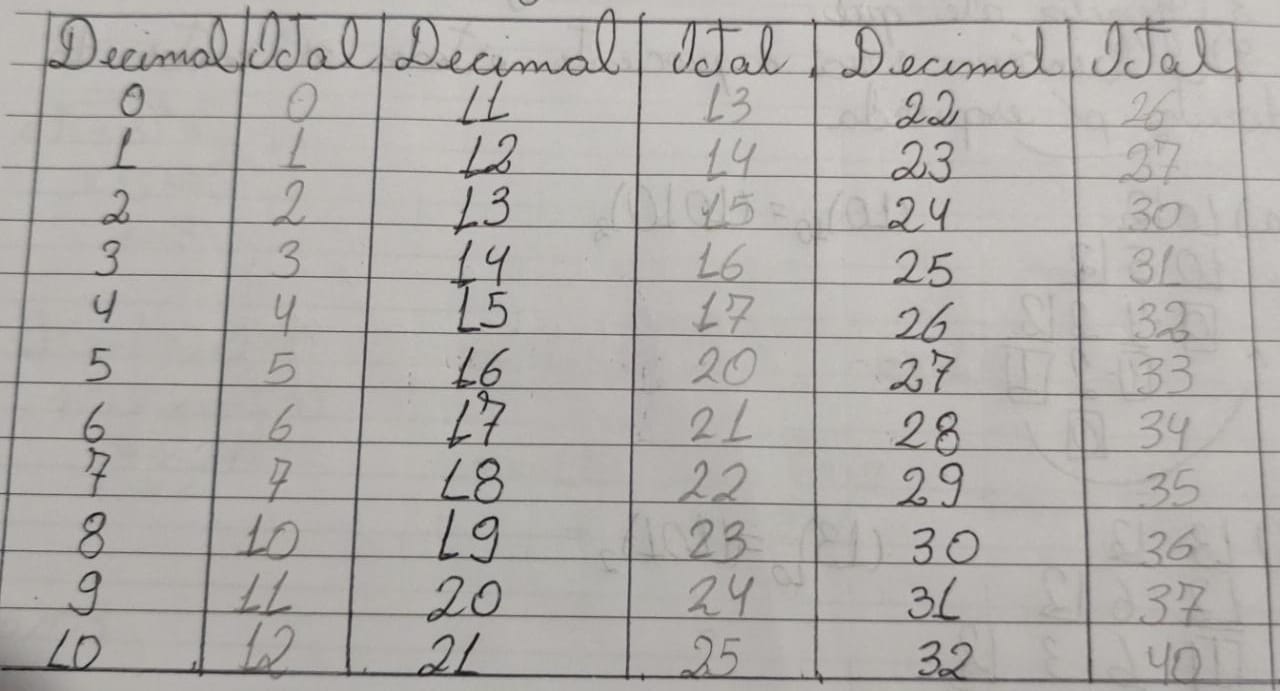 Decimal Otal Decimal Otal Decimal Otal
0 0 11 13 22 26
1 1 12 14 23 27
2 2 13 15 24 30
3 3 14 16 25 31
4 4 15 17 26 32
5 5 16 20 27 33
6 6 17 21 28 34
7 7 18 22 29 35
8 10 19 23 30 36
9 11 20 24 31 37
10 12 21 25 32 40